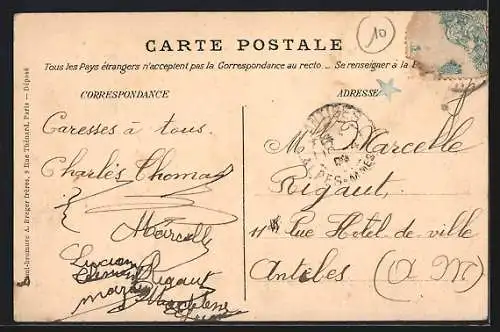 CARTE POSTALE
10
Tous les Pays étrangers n'acceptent pas la Correspondance au recto... Se renseigner à la
CORRESPONDANCE
ADRESSE
Caresses à tous.
Charles Thomas
Marcelle
Lucien
Rigaut
Madeleine
Mlle Marcelle
Rigaut,
11 Rue Hotel de ville
Antibes (A M)
ALPES-MARITIMES
A. Breger frères, 9 Rue Thénard, Paris — Déposé